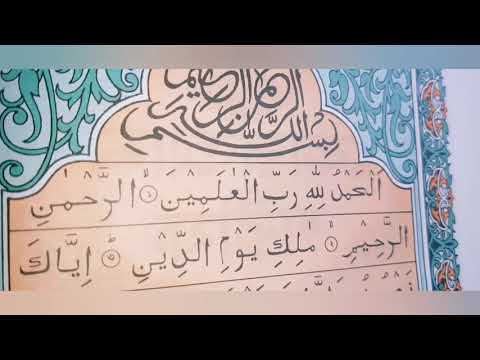 بِسْمِ اللّٰهِ الرَّحْمٰنِ الرَّحِيْمِ
اَلْحَمْدُ لِلّٰهِ رَبِّ الْعٰلَمِيْنَ ۙ الرَّحْمٰنِ
الرَّحِيْمِ ۙ مٰلِكِ يَوْمِ الدِّيْنِ ؕ اِيَّاكَ